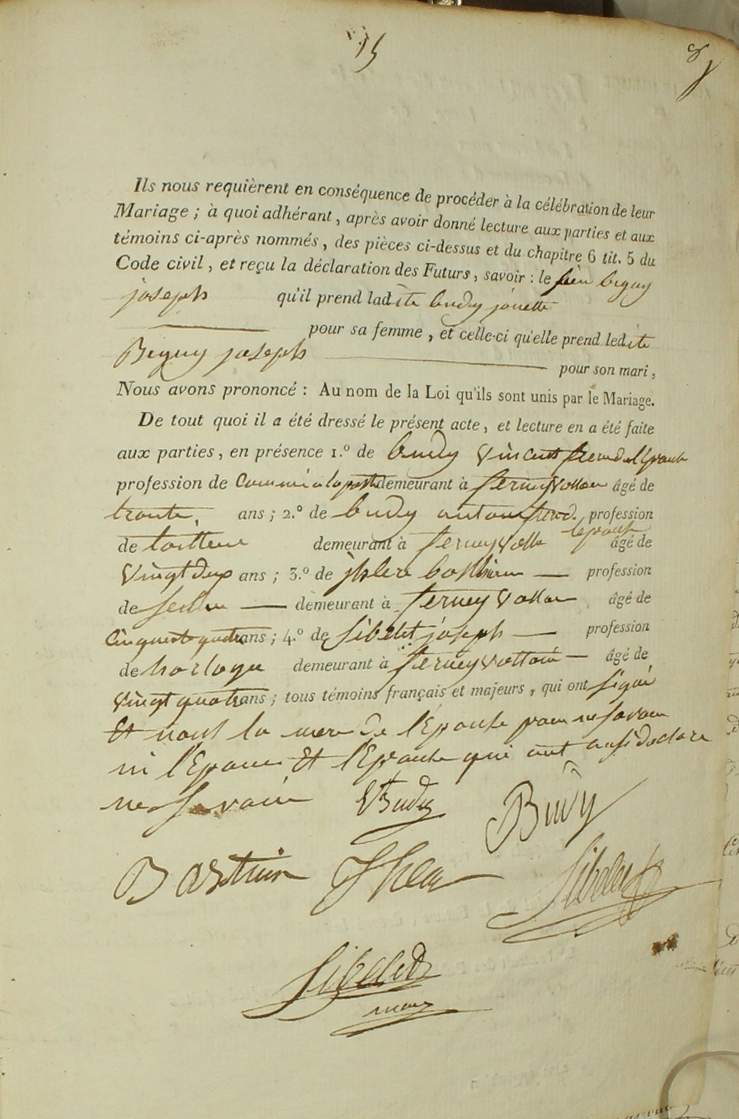 15
8
Ils nous requièrent en conséquence de procéder à la célébration de leur
Mariage ; à quoi adhérant, après avoir donné lecture aux parties et aux
témoins ci-après nommés, des pièces ci-dessus et du chapitre 6 tit. 5 du
Code civil, et reçu la déclaration des Futurs, savoir : le
joseph qu'il prend ladite budy
pour sa femme, et celle-ci qu'elle prend ledite
joseph pour son mari,
Nous avons prononcé : Au nom de la Loi qu'ils sont unis par le Mariage.
De tout quoi il a été dressé le présent acte, et lecture en a été faite
aux parties, en présence 1.º de budy Vincent frere de l'Epouse
profession de demeurant à ferney voltaire âgé de
trante ans ; 2.º de budy profession
de tailleur demeurant à ferney volt l'epouse âgé de
Vingt deux ans ; 3.º de profession
de demeurant à ferney Voltair âgé de
Cinquante quatre ans ; 4.º de Sibelit joseph profession
de horloger demeurant à ferney voltair âgé de
Vingt quatre ans ; tous témoins français et majeurs, qui ont signé
Et nont la mere de l'Epouse pour ne savoir
ni l'Epoux Et l'Epouse qui ont aussi declare
ne savoir VBudy Budy
Sibelit
Sibelit